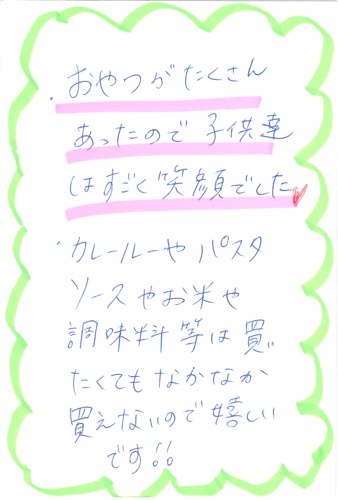 ・おやつがたくさん
あったので子供達
はすごく笑顔でした
・カレールーやパスタ
ソースやお米や
調味料等は買い
たくてもなかなか
買えないので嬉しい
です!!